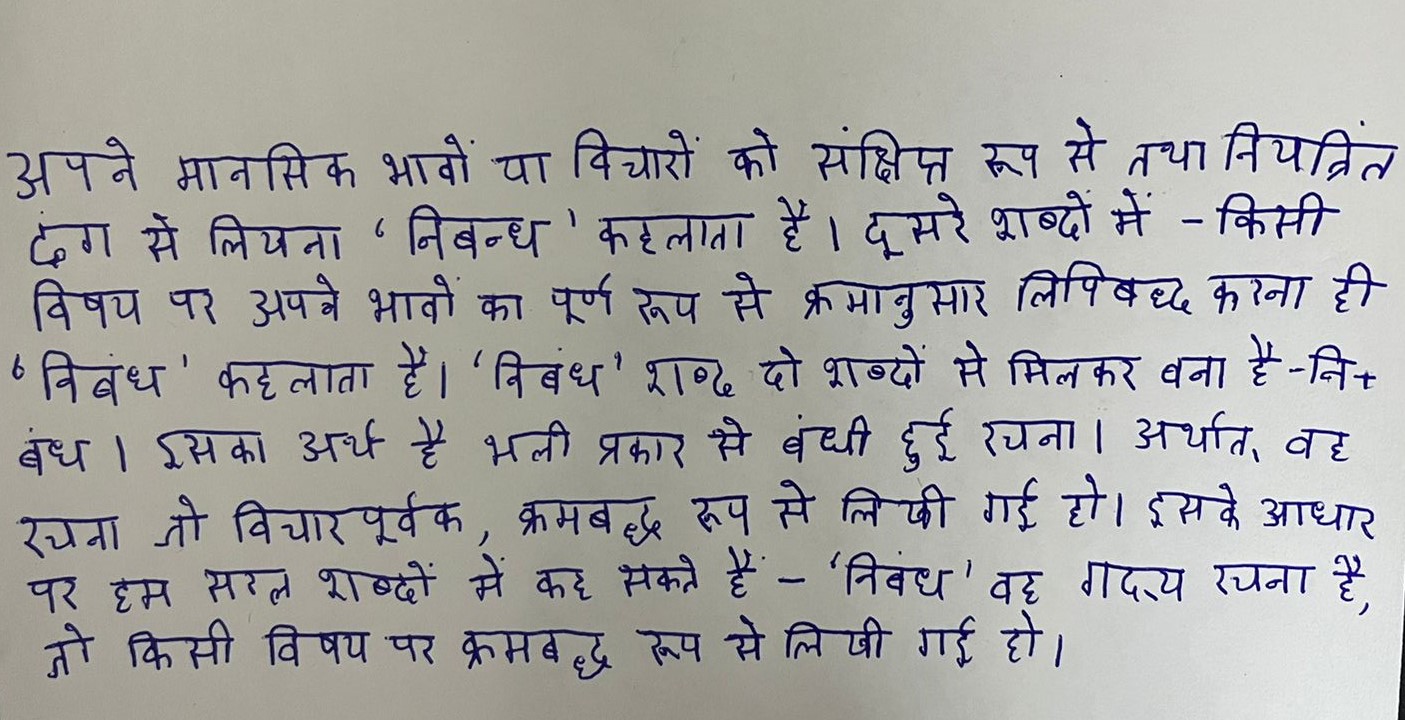 अपने मानसिक भावों या विचारों को संक्षिप्त रूप से तथा नियत्रिंत
ढंग से लियना 'निबन्ध' कहलाता है। दूसरे शब्दों में - किसी
विषय पर अपने भावों का पूर्ण रूप से क्रमानुसार लिपिबध्द करना ही
'निबंध' कहलाता है। 'निबंध' शब्द दो शब्दों से मिलकर बना है-नि+
बंध। इसका अर्थ है भली प्रकार से बंधी हुई रचना। अर्थात् वह
रचना जो विचारपूर्वक, क्रमबद्ध रूप से लिखी गई हो। इसके आधार
पर हम सरल शब्दों में कह सकते हैं - 'निबंध' वह गद्य रचना है,
जो किसी विषय पर क्रमबद्ध रूप से लिखी गई हो।